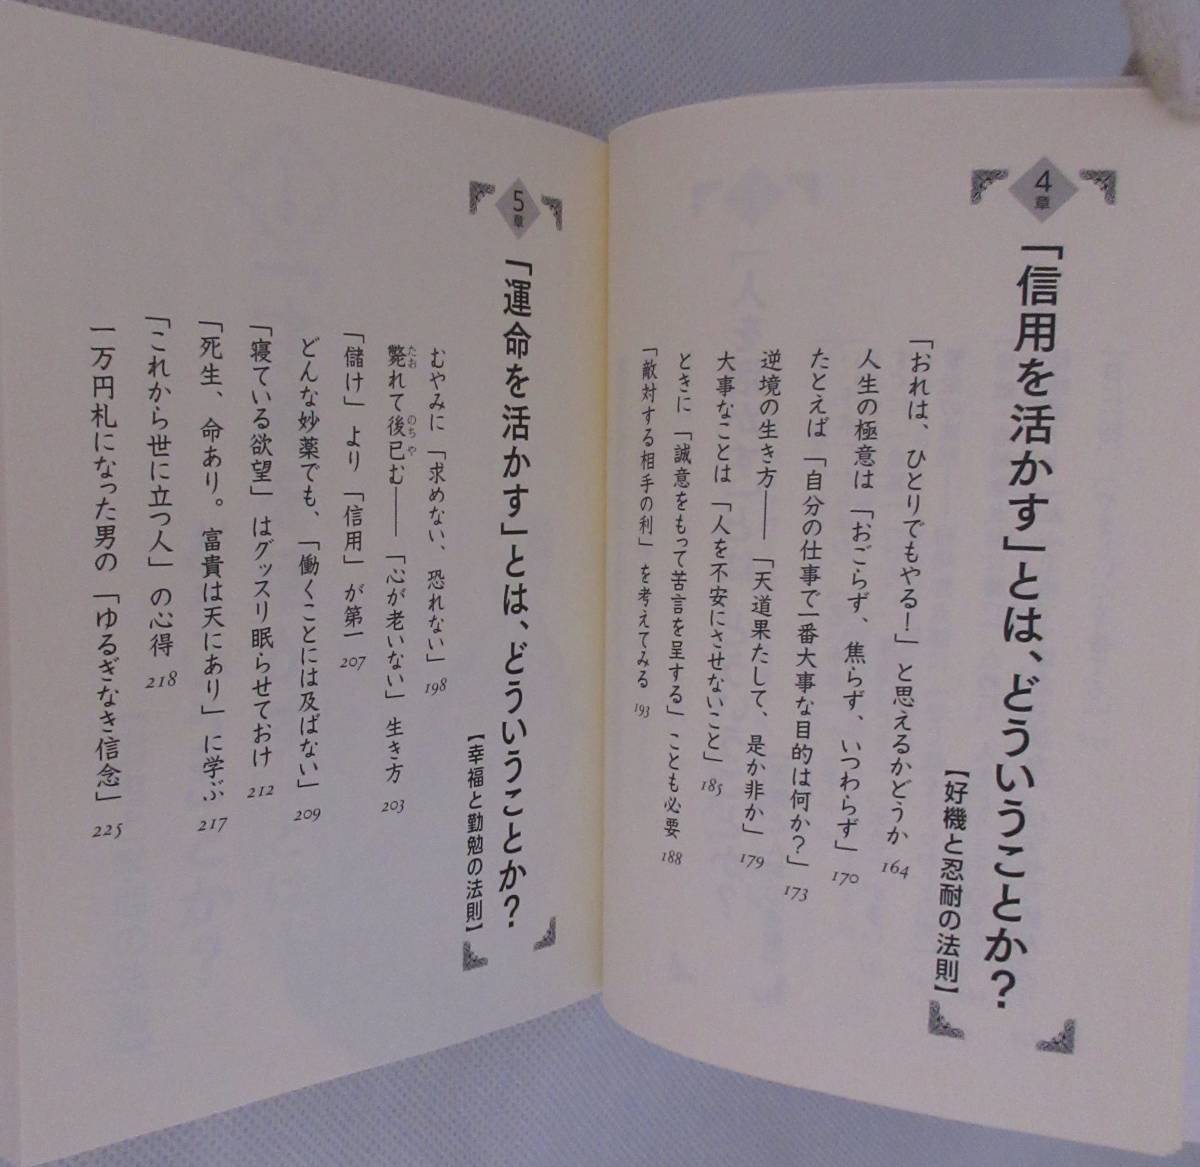 4章
「信用を活かす」とは、どういうことか？
【好機と忍耐の法則】
「おれは、ひとりでもやる！」と思えるかどうか 164
人生の極意は「おごらず、焦らず、いつわらず」 170
たとえば「自分の仕事で一番大事な目的は何か？」 173
逆境の生き方――「天道果たして、是か非か」 179
大事なことは「人を不安にさせないこと」 185
ときに「誠意をもって苦言を呈する」ことも必要 188
「敵対する相手の利」を考えてみる 193
5章
「運命を活かす」とは、どういうことか？
【幸福と勤勉の法則】
むやみに「求めない、恐れない」 198
斃れて後已む――「心が老いない」生き方 203
たお のちや
「儲け」より「信用」が第一 207
どんな妙薬でも、「働くことには及ばない」 209
「寝ている欲望」はグッスリ眠らせておけ 212
「死生、命あり。富貴は天にあり」に学ぶ 217
「これから世に立つ人」の心得 218
一万円札になった男の「ゆるぎなき信念」 225